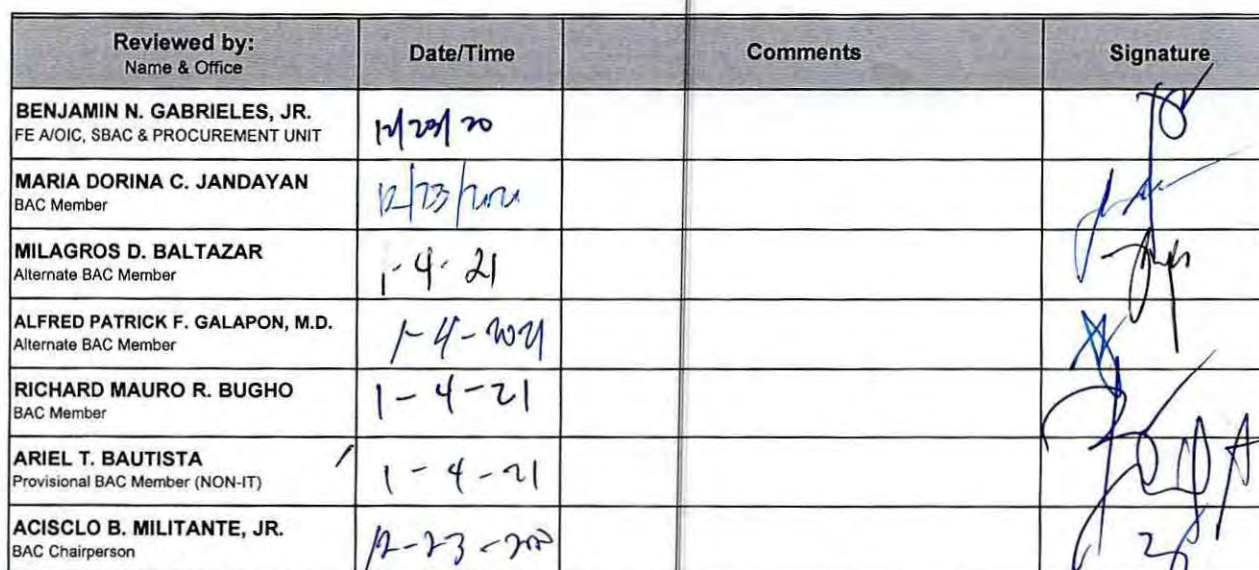 Reviewed by:
Name & Office
Date/Time
Comments
Signature
BENJAMIN N. GABRIELES, JR.
FE A/OIC, SBAC & PROCUREMENT UNIT
12/23/20
MARIA DORINA C. JANDAYAN
BAC Member
12/23/2020
MILAGROS D. BALTAZAR
Alternate BAC Member
1-4-21
ALFRED PATRICK F. GALAPON, M.D.
Alternate BAC Member
1-4-2021
RICHARD MAURO R. BUGHO
BAC Member
1-4-21
ARIEL T. BAUTISTA
Provisional BAC Member (NON-IT)
1-4-21
ACISCLO B. MILITANTE, JR.
BAC Chairperson